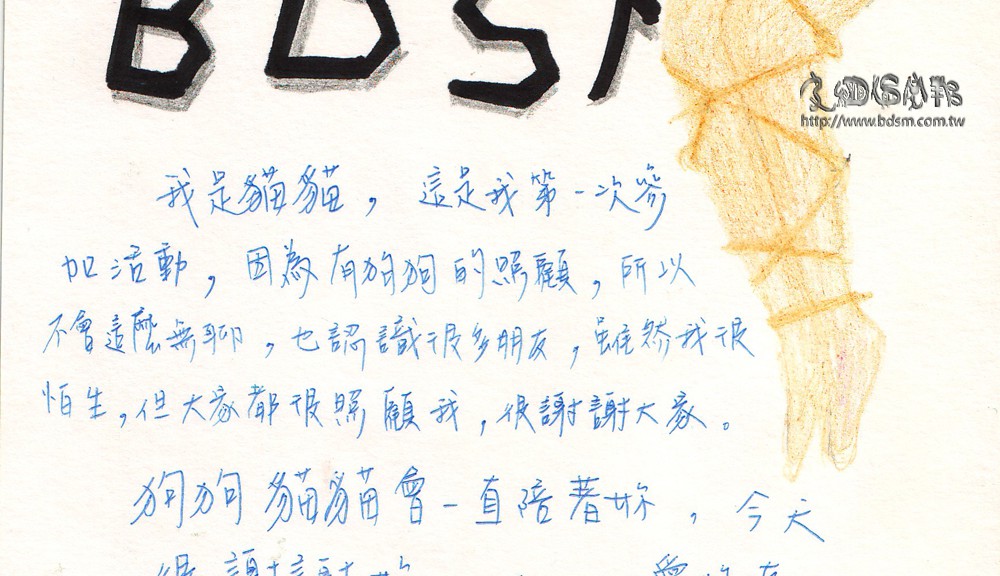 BDSM
http://www.bdsm.com.tw
我是貓貓，這是我第一次參
加活動，因為有狗狗的照顧，所以
不會這麼無聊，也認識很多朋友，雖然我很
怕生，但大家都很照顧我，很謝謝大家。
狗狗貓貓會一直陪著妳，今天
很謝謝妳